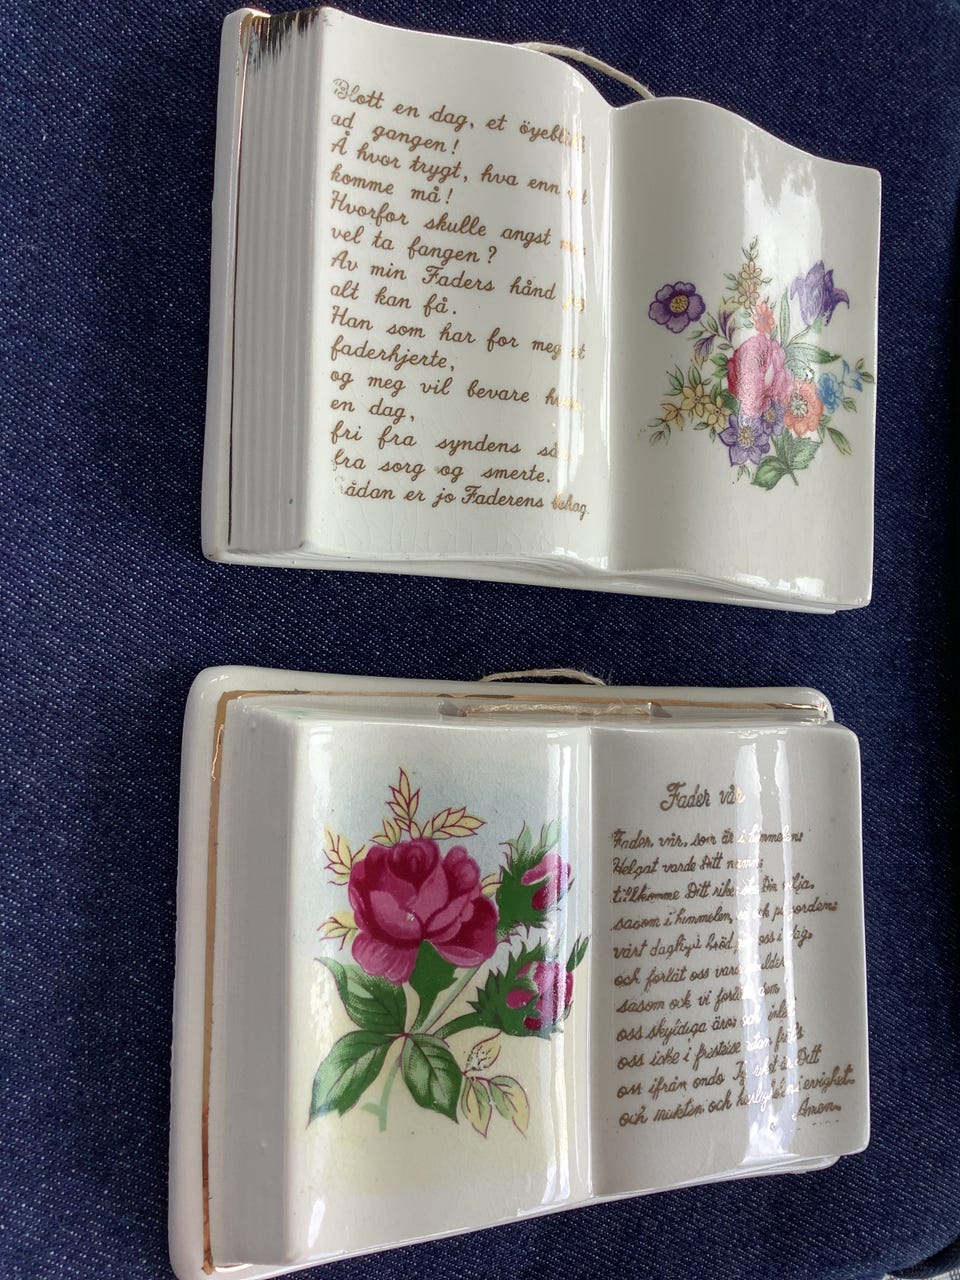 Blott en dag, et öyeblikk
ad gangen!
Å hvor trygt, hva enn
komme må!
Hvorfor skulle angst
vel ta fangen?
Av min Faders hånd jeg
alt kan få.
Han som har for meg et
faderhjerte,
og meg vil bevare
en dag,
fri fra syndens
fra sorg og smerte.
ådan er jo Faderens behag.
Fader vår
Fader vår, som är i himmelen:
Helgat varde Ditt namn:
tillkomme Ditt rike ske Din vilja,
sasom i himmelen, så ock på jorden:
vårt dagliga bröd, oss i dag,
och forlåt oss våra skulder
sasom ock vi forlåt dem
oss skyldiga äro: och inled
oss icke i frestelse utan fräls
oss ifrån ondo Ty riket är Ditt
och makten och härligheten i evighet.
Amen.